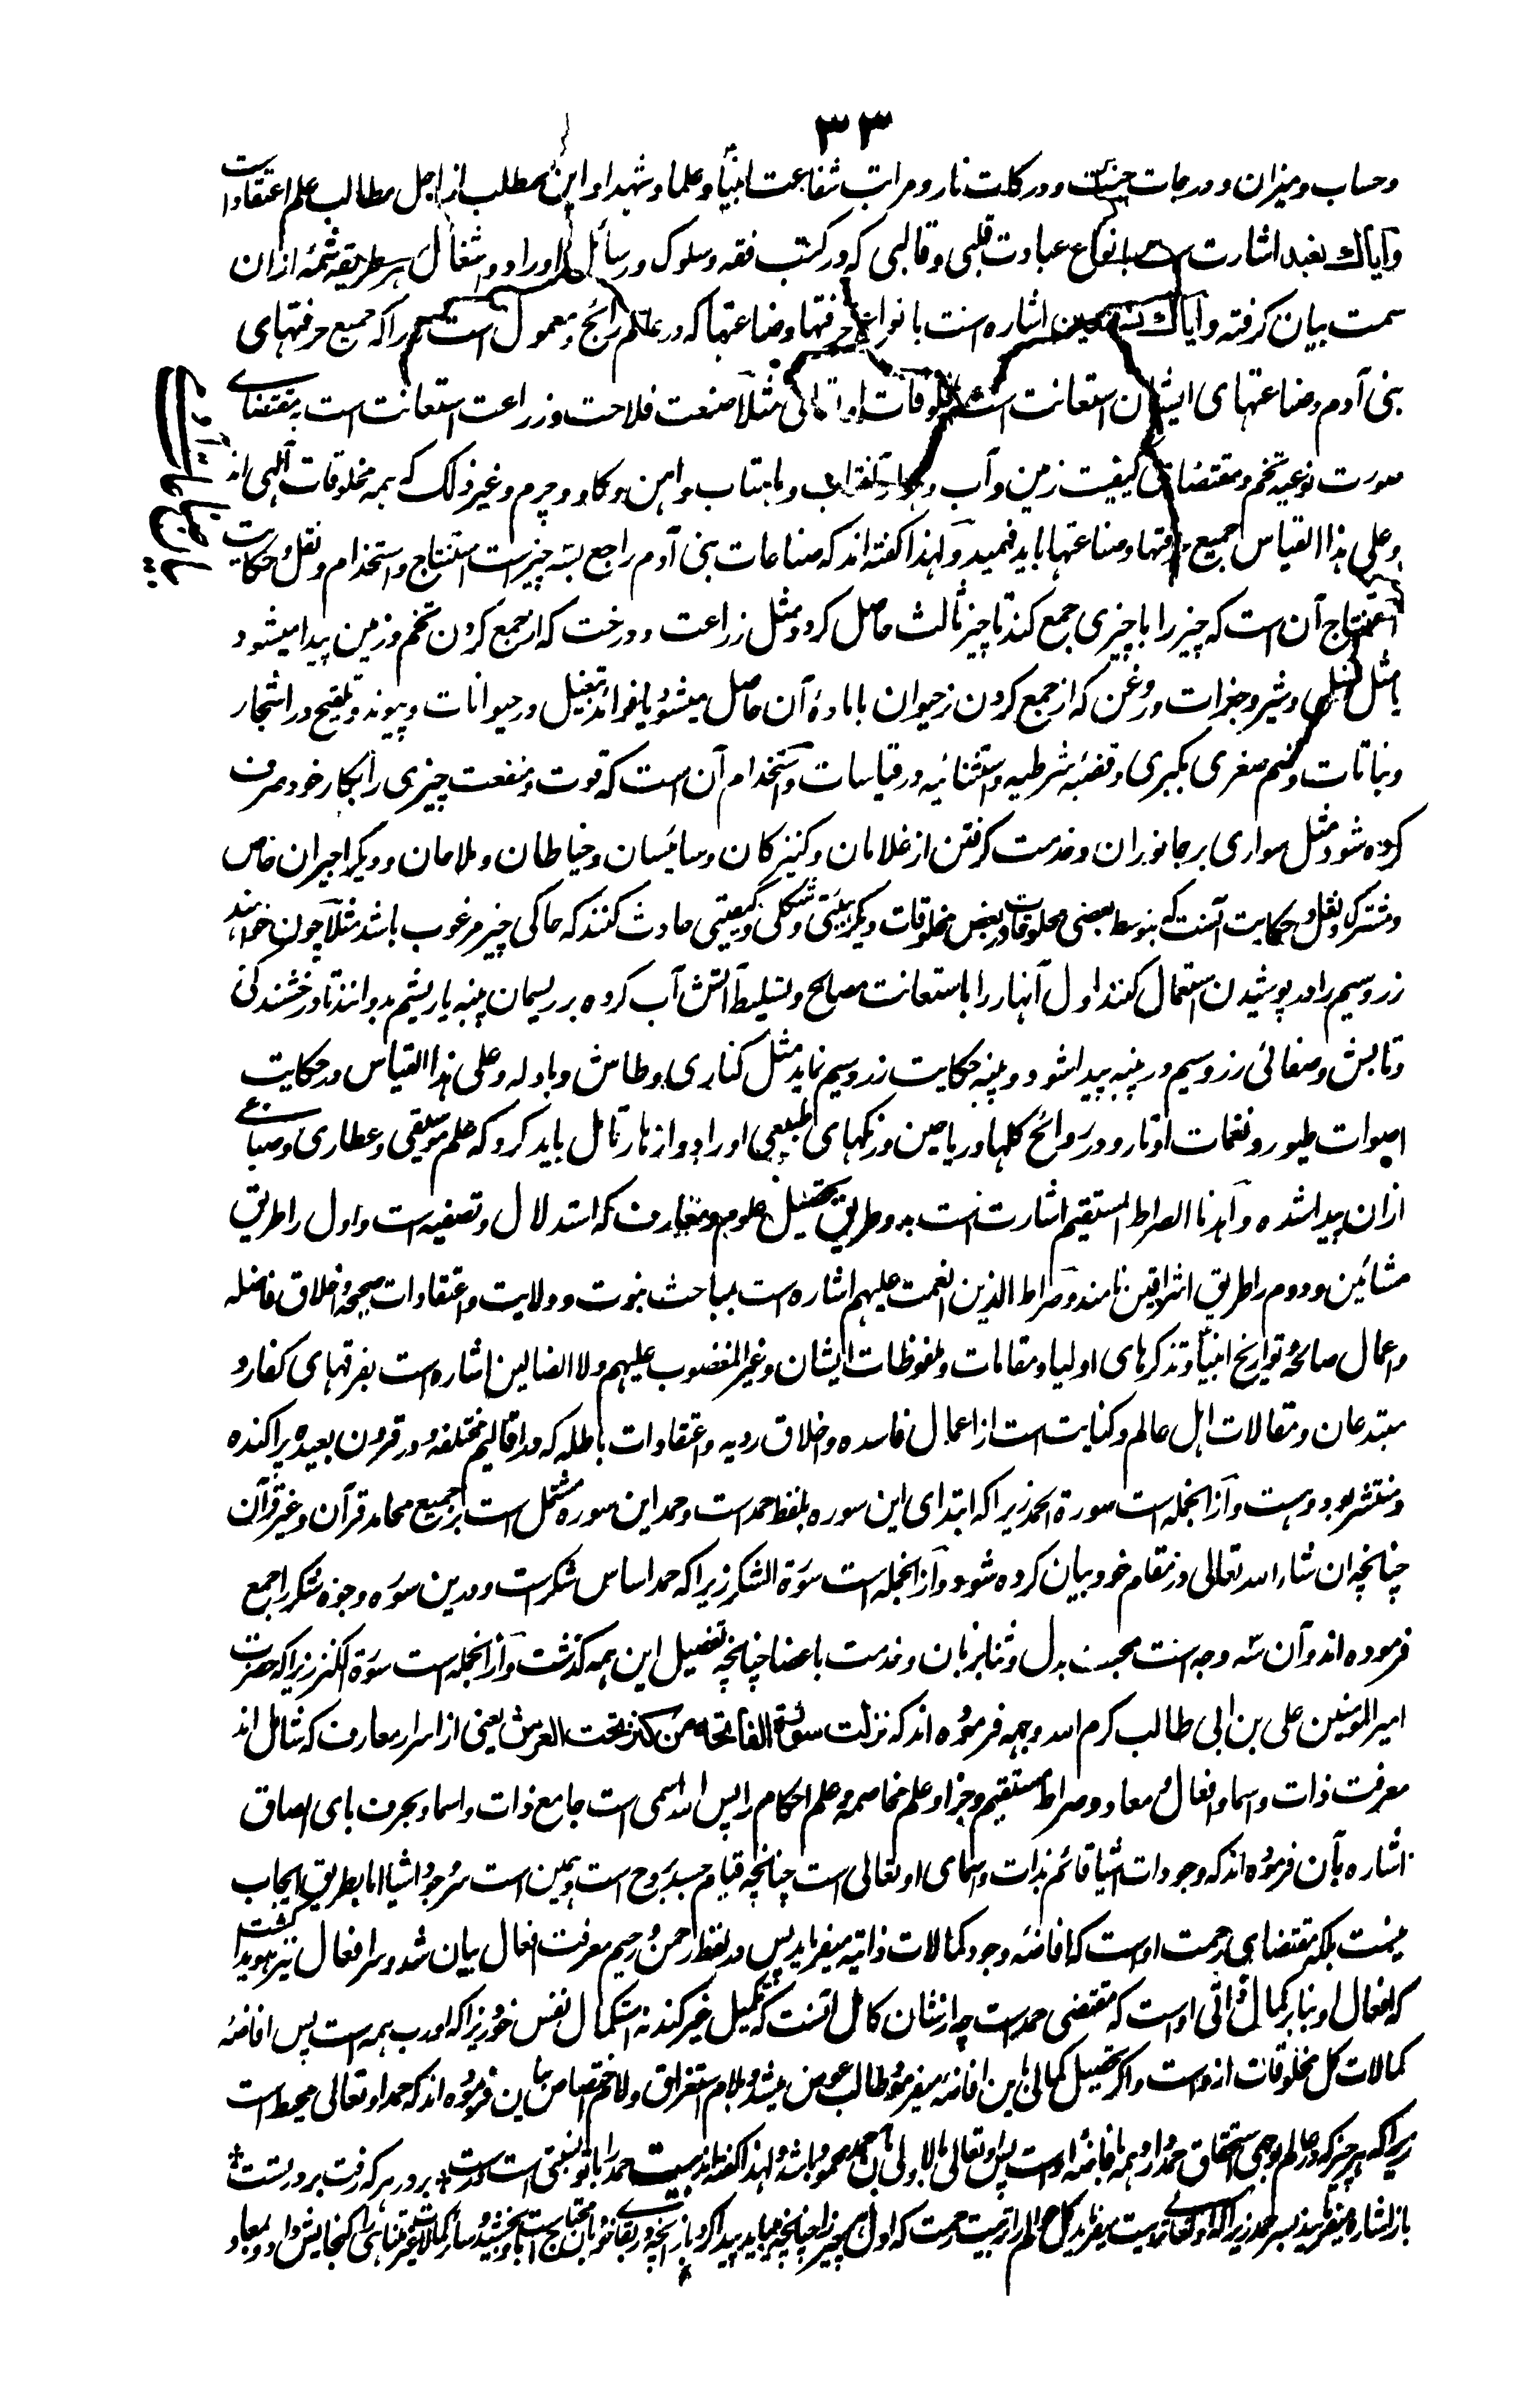 ۳۳
وحساب ومیزان ودرجات جنت ودرکات نار ومراتب شفاعت انبیا وعلما وشهدا واین مطلب از اجل مطالب علم اعتقادات است
وایاك نعبد اشارت است بانواع عبادت قلبی وقالبی که در کتب فقه وسلوک ورسائل اوراد واشغال هر طریقه شمه ازان
سمت بیان گرفته وایاك نستعین اشاره است بانواع حرفتها وصناعتها که در عالم رائج ومعمول است زیراکه جمیع حرفتهای
بنی آدم وصناعتهای ایشان استعانت است بمخلوقات او تعالی مثلا صنعت فلاحت وزراعت استعانت است بمقتضای
صورت نوعیه تخم ومقتضای کیفیت زمین وآب وهوا وآفتاب وماهتاب وآهن وگاو وچرم وغیر ذلک که همه مخلوقات الهی اند
وعلی هذا القیاس جمیع حرفتها وصناعتها باید فهمید ولهذا گفته اند که صناعات بنی آدم راجع بسه چیز است استنتاج واستخدام ونقل وحکایت
استنتاج آن است که چیز را با چیزی جمع کند تا چیز ثالث حاصل گردد مثل زراعت ودرخت که از جمع کردن تخم وزمین پیدا میشود
یا مثل نسل وشیر وجغرات وروغن که از جمع کردن نر حیوان با ماده آن حاصل میشود یا فوائد تبغیل در حیوانات وپیوند وتلقیح در اشجار
ونباتات وضم صغری بکبری وقضیه شرطیه واستثنائیه در قیاسات واستخدام آن است که قوت ومنفعت چیزی را بکار خود صرف
کرده شود مثل سواری بر جانوران وخدمت گرفتن از غلامان وکنیزکان وسائیسان وخیاطان وملاحان ودیگر اجیران خاص
ومشترک ونقل وحکایت آنست که بتوسط بعضی مخلوقات در بعض مخلوقات دیگر هیئتی وشکلی وکیفیتی حادث کنند که حاکی چیز مرغوب باشد مثلا چون خواهند
زر وسیم را در پوشیدن استعمال کنند اول آنها را باستعانت مصالح وتسلیط آتش آب کرده بر ریسمان پنبه یا ریشم بدوانند تا درخشندگی
وتابش وصفائی زر وسیم در پنبه پیدا شود وپنبه حکایت زر وسیم نماید مثل کناری وطاش وبادله وعلی هذا القیاس در حکایت
اصوات طیور ونغمات اوتار ودر روائح گلها وریاحین ورنگهای طبیعی اوراد وازهار تامل باید کرد که علم موسیقی وعطاری وصباغی
ازان پیدا شده واهدنا الصراط المستقیم اشارت است بدو طریق تحصیل علوم ومعارف که استدلال وتصفیه است واول را طریق
مشائین ودوم را طریق اشراقین نامند وصراط الذین انعمت علیهم اشاره است بمباحث نبوت وولایت واعتقادات صحیحه واخلاق فاضله
واعمال صالحه وتواریخ انبیا وتذکرهای اولیا ومقامات وملفوظات ایشان وغیر المغضوب علیهم ولا الضالین اشاره است بفرقهای کفار و
مبتدعان ومقالات اهل عالم وکنایت است از اعمال فاسده واخلاق ردیه واعتقادات باطله که در اقالیم مختلفه ودر قرون بعیده پراکنده
ومنتشر بود وهست وازانجمله است سورة الحمد زیراکه ابتدای این سوره بلفظ حمد است وحمد این سوره مشتمل است بر جمیع محامد قرآن وغیر قرآن
چنانچه ان شاء الله تعالی در مقام خود بیان کرده شود وازانجمله است سورة الشکر زیراکه حمد اساس شکر است ودرین سوره وجوه شکر را جمع
فرموده اند وآن سه وجه است محبت بدل وثنا بزبان وخدمت باعضا چنانچه تفصیل این همه گذشت وازانجمله است سورة الکنز زیراکه حضرت
امیر المؤمنین علی بن ابی طالب کرم الله وجهه فرموده اند که نزلت سورة الفاتحة من کنز تحت العرش یعنی از اسرار معارف که شامل اند
معرفت ذات واسما وافعال ومعاد وصراط مستقیم وجزا وعلم مخاصمه وعلم احکام را پس الله اسمی است جامع ذات واسما وبحرف بای الصاق
اشاره بآن فرموده اند که وجودات اشیا قائم بذات واسمای او تعالی است چنانچه قیام جسد بروح است وهمین است سر وجود اشیا اما بطریق ایجاب
نیست بلکه مقتضای رحمت اوست که افاضه وجود کمالات ذاتیه میفرماید پس در لفظ رحمن ورحیم معرفت افعال بیان شد وسر افعال نیز هویدا گشت
که افعال او بنابر کمال ذاتی اوست که مقتضی حمد است چه از شان کامل آنست که تکمیل غیر کند نه استکمال نفس خود زیراکه او رب همه است پس افاضه
کمالات کل مخلوقات ازوست واگر تحصیل کمالی باین افاضه میفرمود طالب عوض میشد وبلام استغراق ولام اختصاص بیان فرموده اند که حمد او تعالی محیط است
زیراکه هر چیز که در عالم بوجهی استحقاق حمد دارد همه بافاضه اوست پس او تعالی بالاولی بآن حمد محمود باشد ولهذا گفته اند بیت حمد را با تو نسبتی است درست * بر در هر که رفت بر در تست *
باز اشاره میفرمایند بسر حمد زیراکه او تعالی تربیت میفرماید کل عالم را تربیت رحمت که اول هر چیز را چنانچه میباید پیدا کرد باز آنچه در بقای خود بآن محتاج است باو بخشید وسائر کمالات غیر متناهی را گنجایش داد ومعاد
بیان صناعات بنی آدم